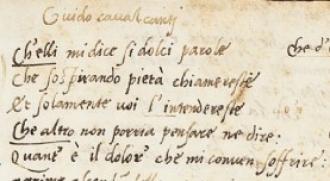 Guido cavalcantj
Ch'elli mi dice si dolci parole che d'
Che sospirando pietà chiamereste
Et solamente voi l'intendereste
Che altro non porria pensare ne dire:
Quant' è il dolor' che mi conven soffrire